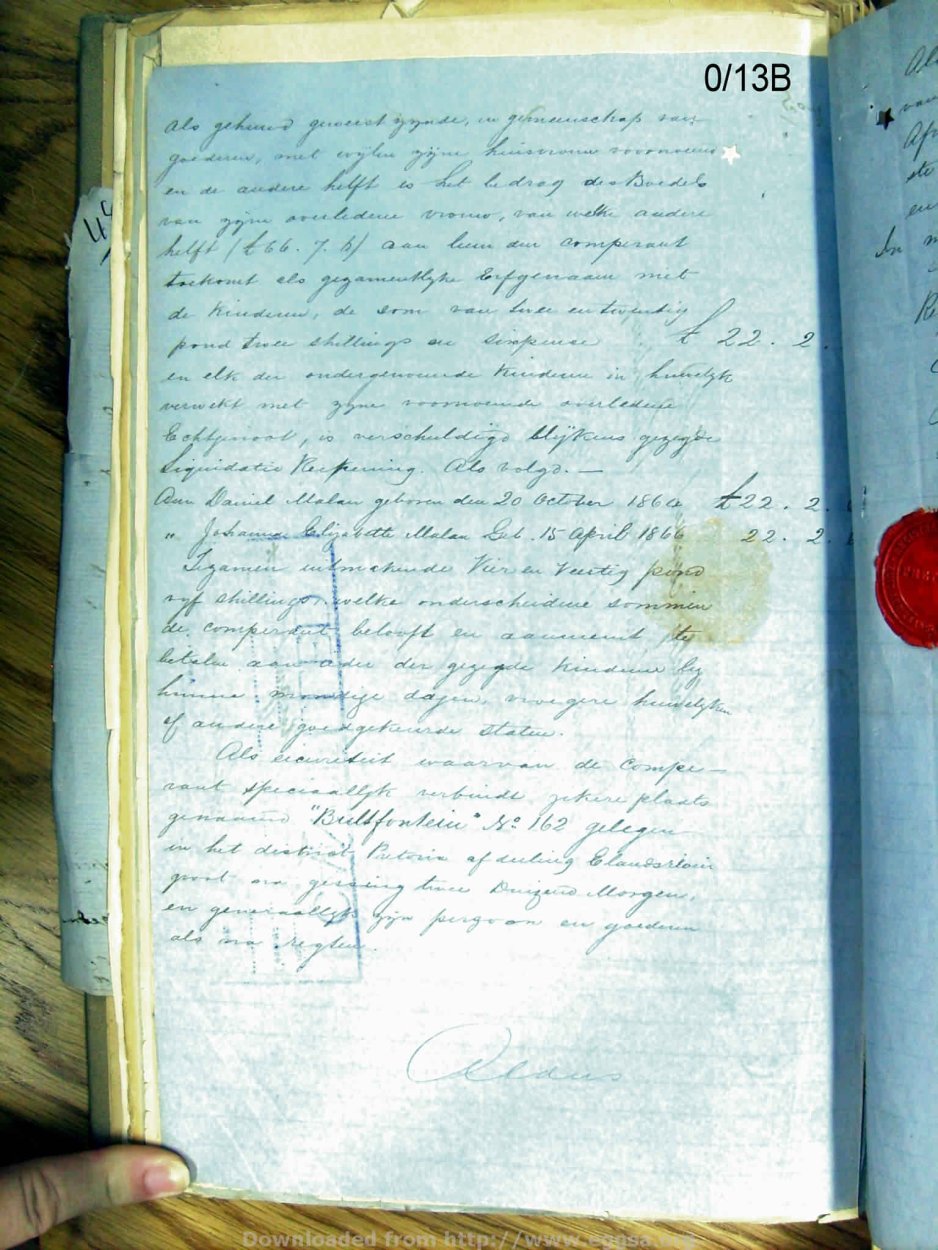 0/13B
als gehuwd geweest zynde, in gemeenschap van
goederen, met wylen zyne huisvrouw voornoemd
en de andere helft is het bedrag des Boedels
van zyne overledene vrouw, van welke andere
helft (£66. 7. 6) aan hem den comperant
toekomt als gezamentlyke Erfgenaam met
de Kinderen, de som van twee en twentig
pond twee shillings en sixpence £ 22. 2.
en elk der ondergenoemde Kinderen in huwelyk
verwekt met zyne voornoemde overledene
Echtgenoot, is verschuldigd blykens gezegde
Liquidatie Rekening. Als volgd. —
Aan Daniel Malan geboren den 20 October 1864 £22. 2. 6
" Johanna Elizabetta Malan Geb. 15 April 1866 22. 2. 6
Tezamen uitmakende Vier en Veertig pond
vyf shillings, welke onderscheidene sommen
de comperant belooft en aanneemt te
betalen aan ieder der gezegde Kinderen by
hunne mondige dagen, vroegere huwelyken
of andere goedgekeurde staten.
Als securiteit waarvan de Compe-
rant speciaallyk verbindt zekere plaats
genaamd "Bultfontein" No 162 gelegen
in het district Pretoria afdeeling Elandsrivier
groot na gissing twee Duizend Morgen,
en generaallyk zyn persoon en goederen
als na regten.
Aldus
Als
van
In
Downloaded from http://www.eggsa.org